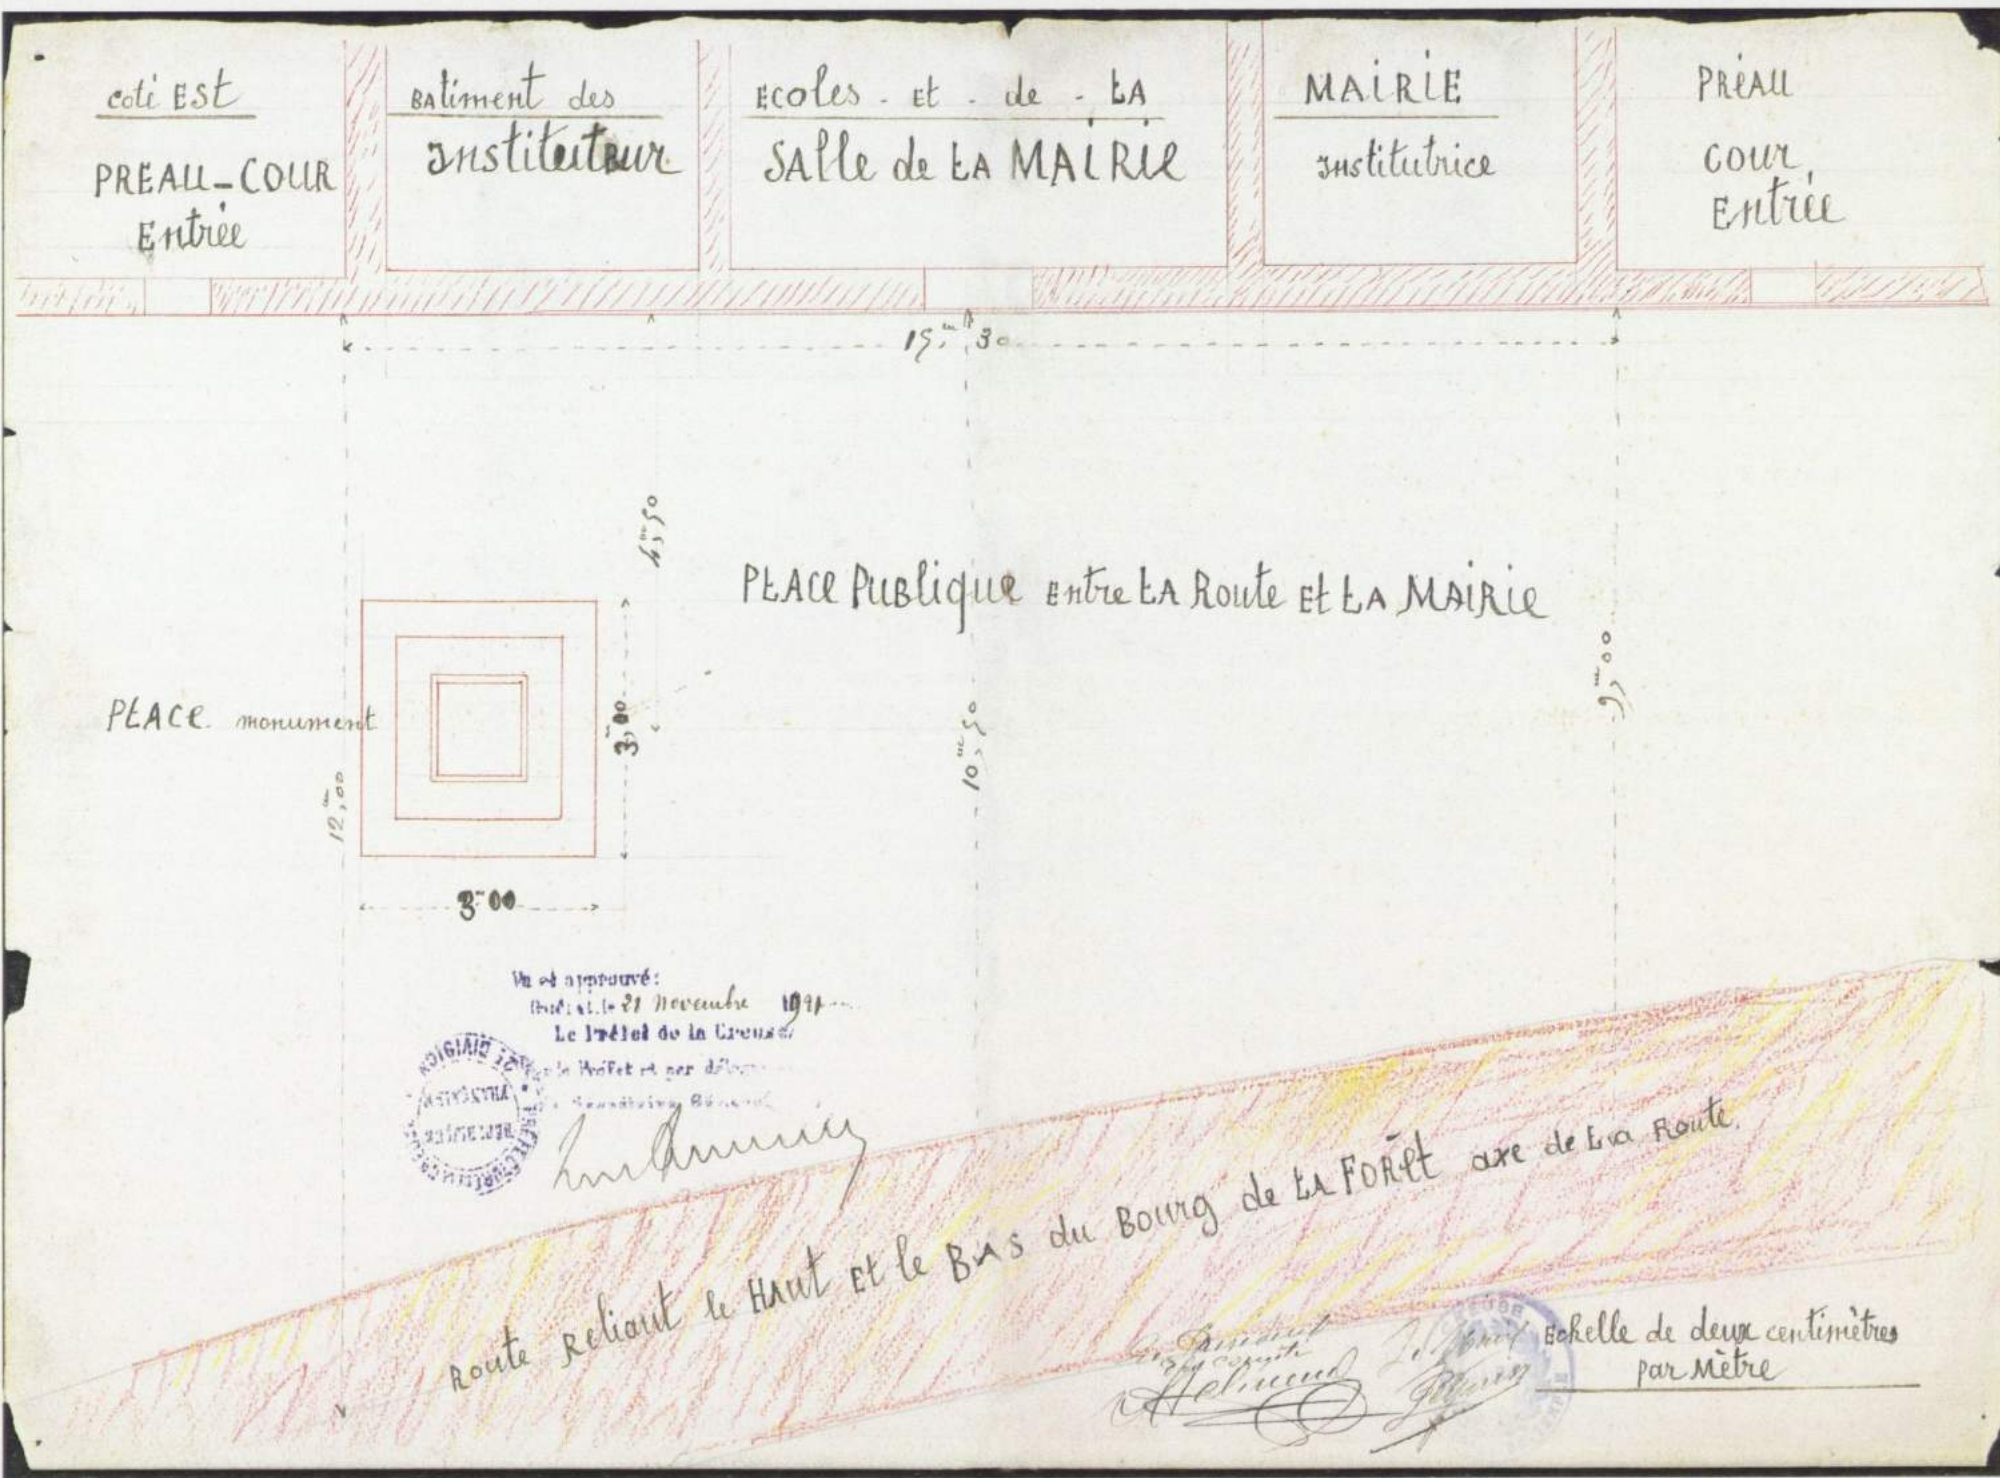 coté EST
PREAU-COUR
Entrée
Batiment des
Instituteur
Ecoles - et - de - LA
SAlle de LA MAIRIE
MAIRIE
Institutrice
PREAU
COUR
Entrée
15,m30
4,m50
PLACE PUBlique Entre LA Route Et LA MAIRIE
PLACE monument
3,m00
9,m00
10,m50
12,m00
3m00
Vu et approuvé:
le 21 Novembre
Le Préfet de la Creuse,
le Préfet et par
2e DIVISION
Route Reliant le HAUT Et le BAS du Bourg de LA FORÊt axe de La Route.
Echelle de deux centimètres
par Mètre